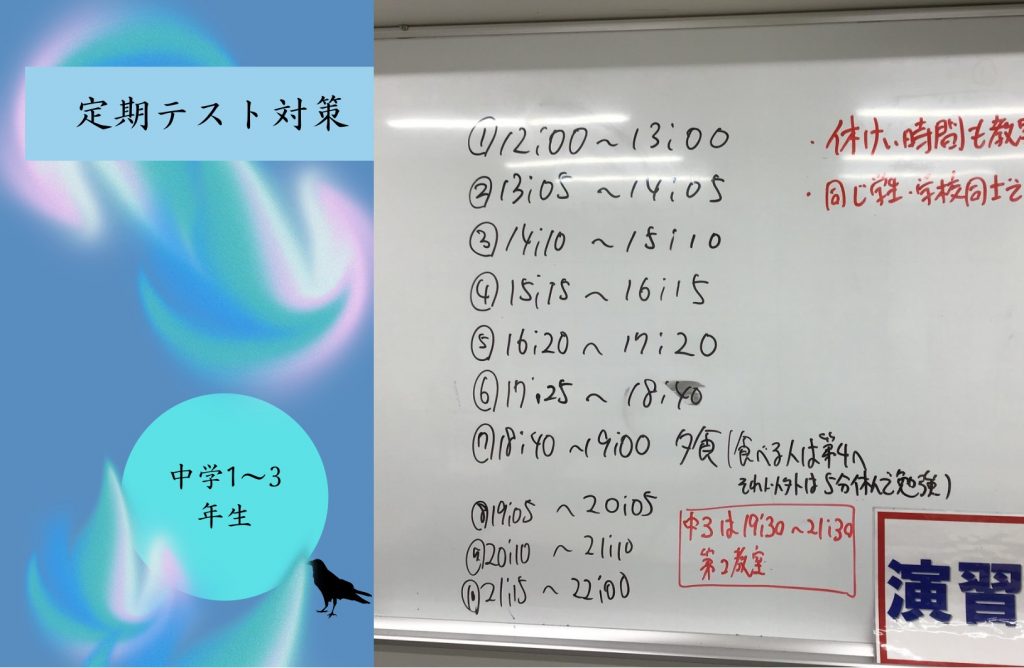 定期テスト対策
中学1～3
年生
①12:00～13:00
②13:05～14:05
③14:10～15:10
④15:15～16:15
⑤16:20～17:20
⑥17:25～18:40
⑦18:40～19:00 夕食(食べる人は第4へ
それ以外は5分休んで勉強)
⑧19:05～20:05
⑨20:10～21:10
⑩21:15～22:00
・休けい時間も教
・同じ学生・学校同士で
中3は19:30～21:30
第2教室
演習